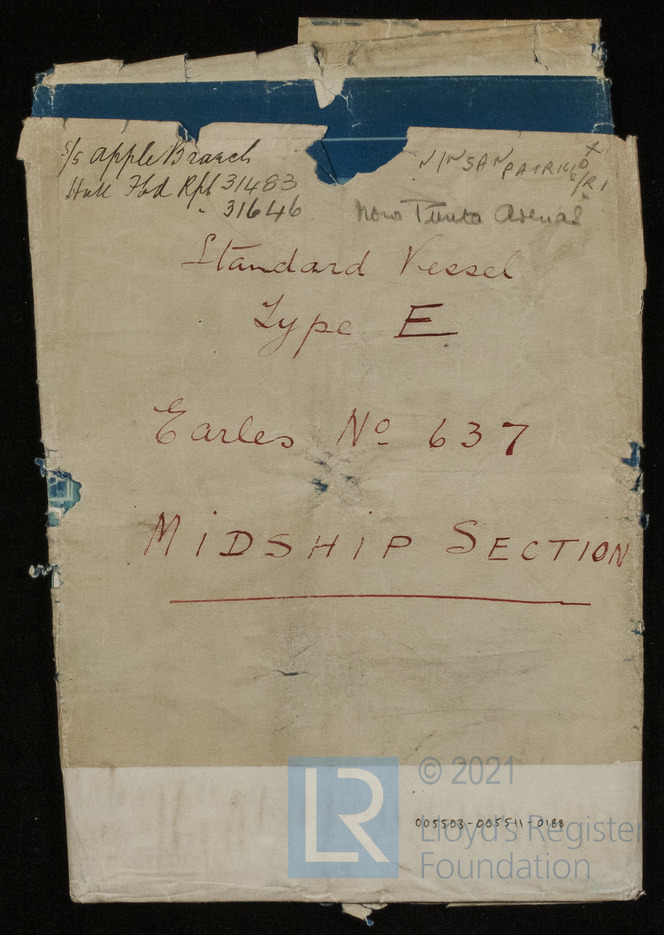 S/S Apple Branch
Hull Fbd Rpt 31483
" 31646
N/N SAN PATRICIO X
S/R 1
Now Punta Arenas
Standard Vessel
Type E
Earles No 637
MIDSHIP SECTION
LR
© 2021
Lloyd's Register
Foundation
005503-005511-0188